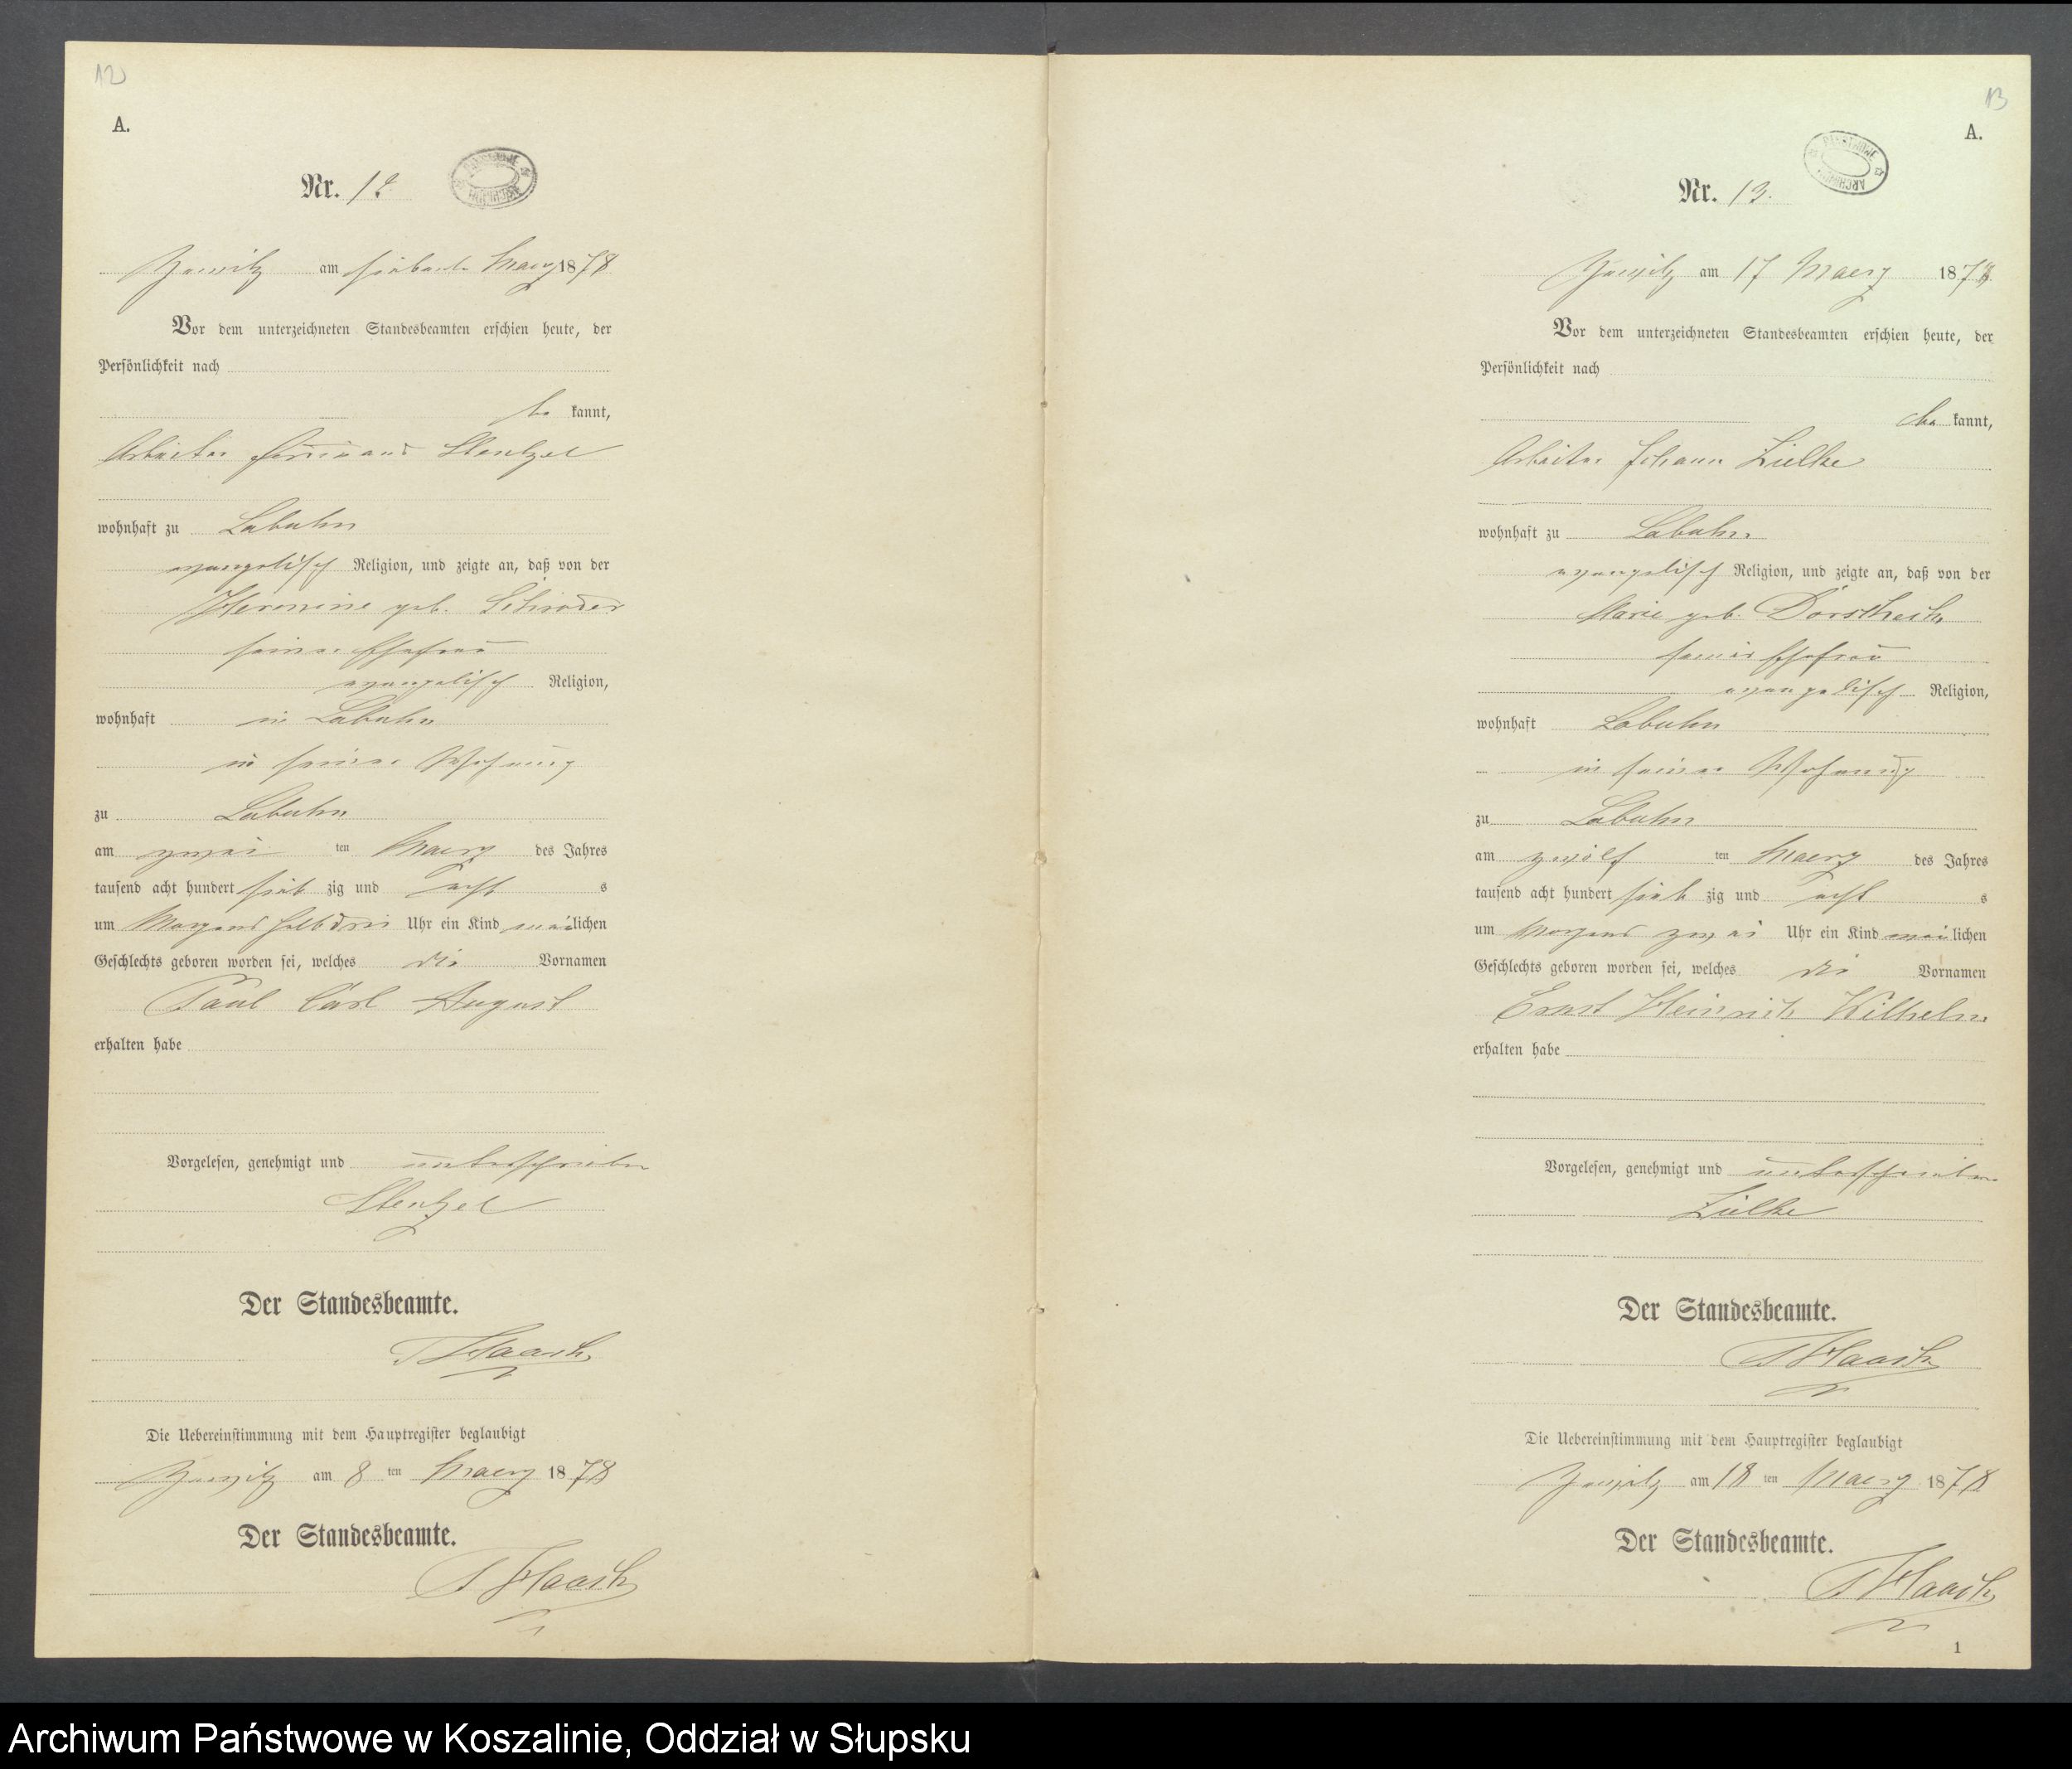 12
A.
Nr. 12
am siebente Maerz 1878
Vor dem unterzeichneten Standesbeamten erschien heute, der
Persönlichkeit nach
be kannt,
Arbeiter Ferdinand Stentzel
wohnhaft zu Labuhn
evangelisch Religion, und zeigte an, daß von der
Hermine geb. Schröder
seiner Ehefrau
evangelisch Religion,
wohnhaft in Labuhn
in seiner Wohnung
zu Labuhn
am zwei ten Maerz des Jahres
tausend acht hundert sieb zig und acht s
um Morgens halb drei Uhr ein Kind männlichen
Geschlechts geboren worden sei, welches die Vornamen
Paul Carl August
erhalten habe
Vorgelesen, genehmigt und unterschrieben
Stentzel
Der Standesbeamte.
Die Uebereinstimmung mit dem Hauptregister beglaubigt
am 8 ten Maerz 1878
Der Standesbeamte.
13
A.
PAŃSTWOWE ARCHIWUM
Nr. 13.
am 17 Maerz 1878
Vor dem unterzeichneten Standesbeamten erschien heute, der
Persönlichkeit nach
be kannt,
Arbeiter Johann Zielke
wohnhaft zu Labuhn
evangelisch Religion, und zeigte an, daß von der
Marie geb.
seiner Ehefrau
evangelisch Religion,
wohnhaft Labuhn
in seiner Wohnung
zu Labuhn
am zwölf ten Maerz des Jahres
tausend acht hundert sieb zig und acht s
um Morgens zwei Uhr ein Kind männlichen
Geschlechts geboren worden sei, welches die Vornamen
Ernst Heinrich Wilhelm
erhalten habe
Vorgelesen, genehmigt und unterschrieben
Zielke
Der Standesbeamte.
Die Uebereinstimmung mit dem Hauptregister beglaubigt
am 18 ten Maerz 1878
Der Standesbeamte.
1
Archiwum Państwowe w Koszalinie, Oddział w Słupsku